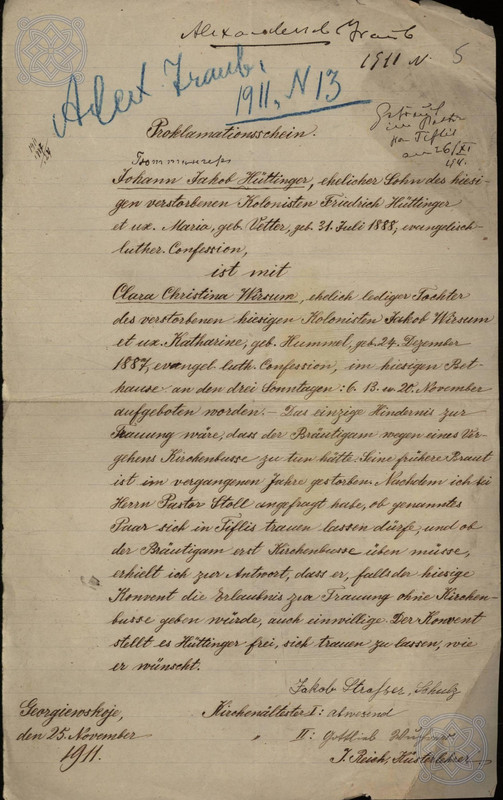 Alexandersd. Traub
1911 N. 5
Alex. Traub.
1911, N 13
Getraut
von Tiflis
am 26/XI
Proklamationsschein.
Johann Jakob Hüttinger, ehelicher Sohn des hiesi-
gen verstorbenen Kolonisten Friedrich Hüttinger
et ux. Maria, geb. Vetter, geb. 31. Juli 1888, evangelisch-
luther. Confession,
ist mit
Clara Christina Wirsum, ehelich lediger Tochter
des verstorbenen hiesigen Kolonisten Jakob Wirsum
et ux. Katharine, geb. Hummel, geb. 24. Dezember
1887, evangel. luth. Confession, im hiesigen Bet-
hause an den drei Sonntagen: 6. 13. u. 20. November
aufgeboten worden. – Das einzige Hindernis zur
Trauung wäre, dass der Bräutigam wegen eines Ver-
gehens Kirchenbusse zu tun hätte. Seine frühere Braut
ist im vergangenen Jahre gestorben. Nachdem ich bei
Herrn Pastor Stoll angefragt habe, ob genanntes
Paar sich in Tiflis trauen lassen dürfe, und ob
der Bräutigam erst Kirchenbusse üben müsse,
erhielt ich zur Antwort, dass er, falls der hiesige
Konvent die Erlaubnis zur Trauung ohne Kirchen-
busse geben würde, auch einwillige. Der Konvent
stellt es Hüttinger frei, sich trauen zu lassen, wie
er wünscht.
Jakob Strasser, Schulz
Georgiewskoje,
Kirchenältester I: abwesend
den 25. November
" II: Gottlieb
1911.
J. Reich, Küsterlehrer